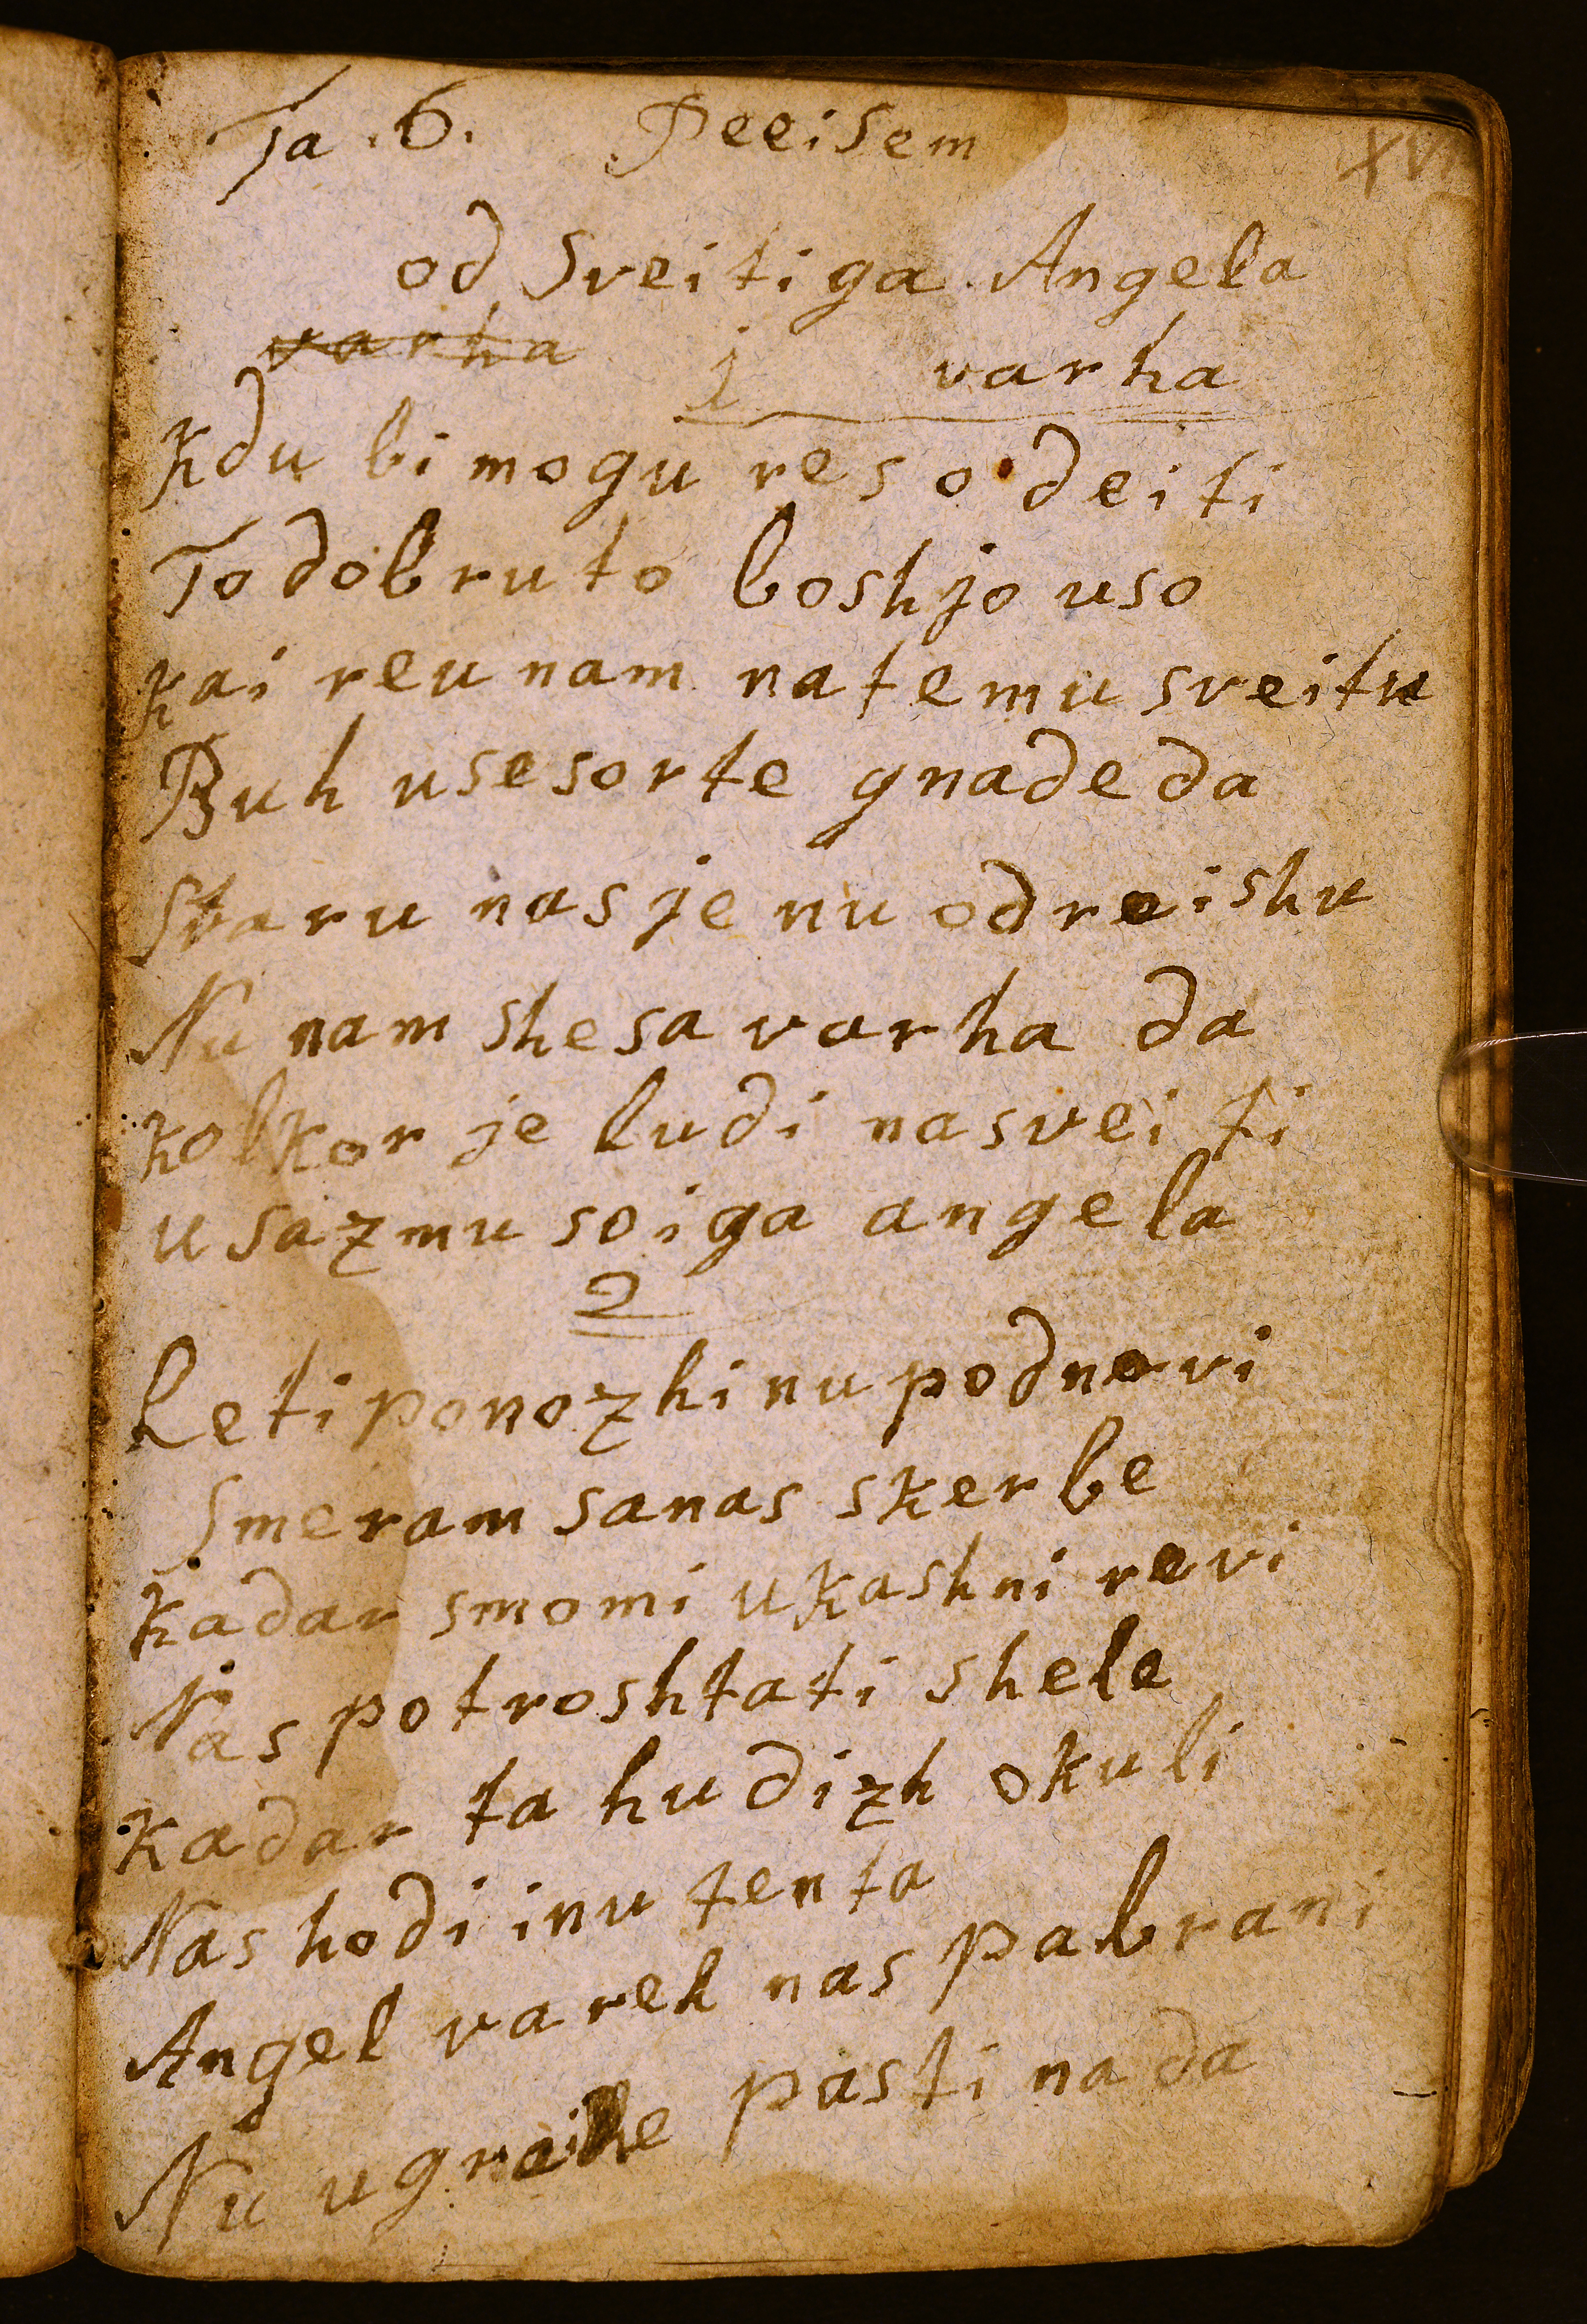 Ta .6. Peeisem
XVI
od Sveitiga Angela
varha 1 varha
Kdu bi mogu res odeiti
To dobruto boshjo uso
kai reu nam na temu sveitu
Buh use sorte gnade da
Stvaru nas je nu odreishu
Nu nam she sa varha da
kolkor je ludi na sveiti
usazmu soiga angela
2
Leti ponozhi nu podnevi
Smeram sa nas skerbe
kadar smo mi ukashni revi
Nas potroshtati shele
kadar ta hudizh okuli
Nas hodi inu tenta
Angel vareh nas pabrani
Nu u greihe pasti na da